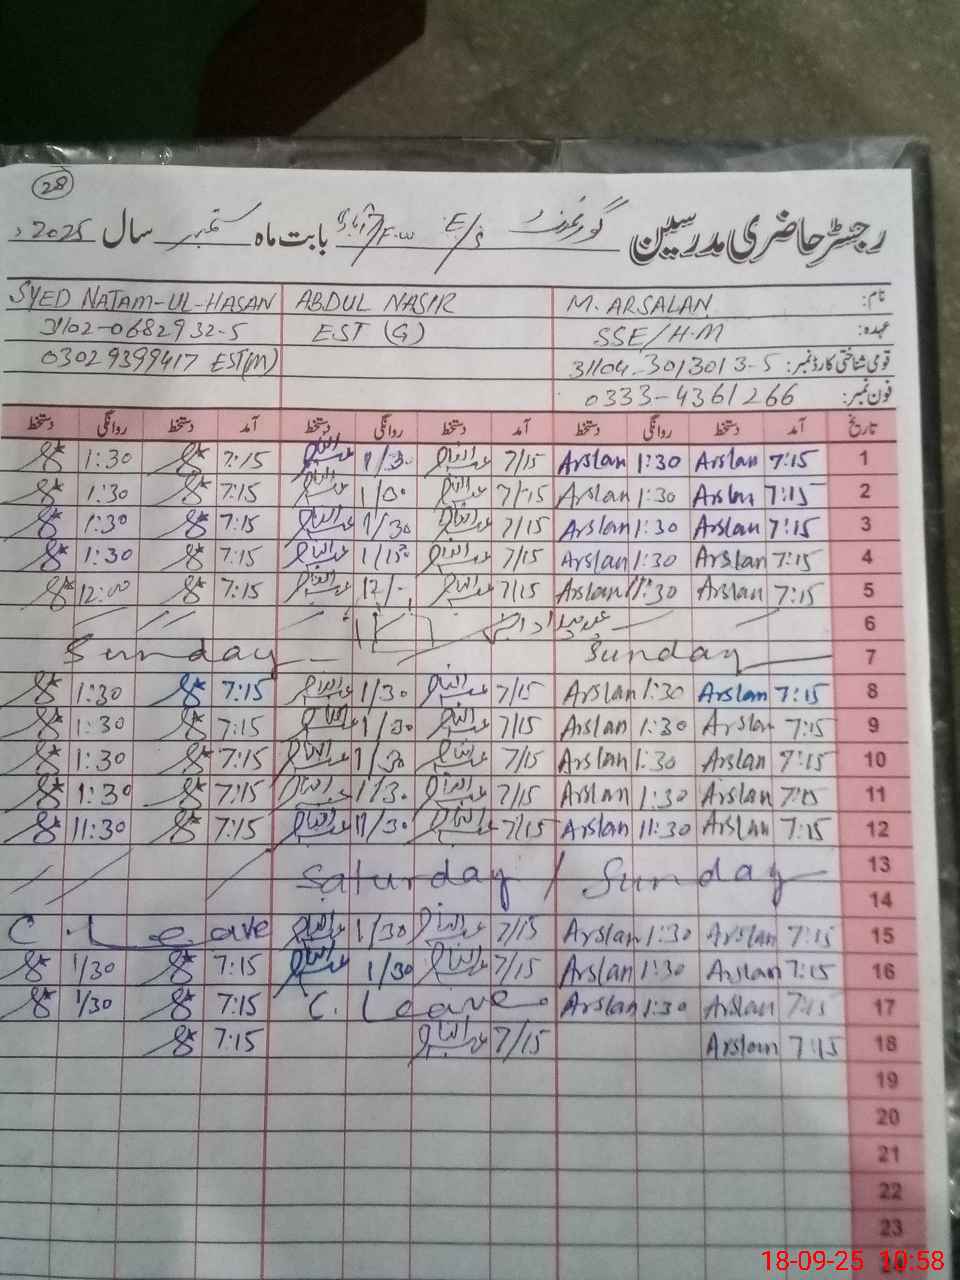 28
رجسٹر حاضری مدرسین گورنمنٹ E/S 17/F.W بابت ماہ ستمبر سال 2025ء
SYED NATAM-UL-HASAN ABDUL NASIR M. ARSALAN نام:
31102-0682932-5 EST (G) SSE/H.M عہدہ:
03029399417 EST(M) 31104-3013013-5 قومی شناختی کارڈ نمبر:
0333-4361266 فون نمبر:
دستخط روانگی دستخط آمد دستخط روانگی دستخط آمد دستخط روانگی دستخط آمد تاریخ
1:30 7:15 1/30 7/15 Arslan 1:30 Arslan 7:15 1
1:30 7:15 1/30 7/15 Arslan 1:30 Arslan 7:15 2
1:30 7:15 1/30 7/15 Arslan 1:30 Arslan 7:15 3
1:30 7:15 7/15 Arslan 1:30 Arslan 7:15 4
12:00 7:15 12/- 7/15 Arslan Arslan 7:15 5
6
Sunday Sunday 7
1:30 7:15 1/30 7/15 Arslan 1:30 Arslan 7:15 8
1:30 7:15 1/30 7/15 Arslan 1:30 Arslan 7:15 9
1:30 7:15 1/30 7/15 Arslan 1:30 Arslan 7:15 10
1:30 7:15 1/30 7/15 Arslan 1:30 Arslan 7:15 11
11:30 7:15 11/30 7/15 Arslan 11:30 Arslan 7:15 12
Saturday / Sunday 13
14
C. Leave 1/30 7/15 Arslan 1:30 Arslan 7:15 15
1/30 7:15 1/30 7/15 Arslan 1:30 Arslan 7:15 16
1/30 7:15 C. Leave Arslan 1:30 Arslan 7:15 17
7:15 7/15 Arslan 7:15 18
19
20
21
22
23
18-09-25 10:58